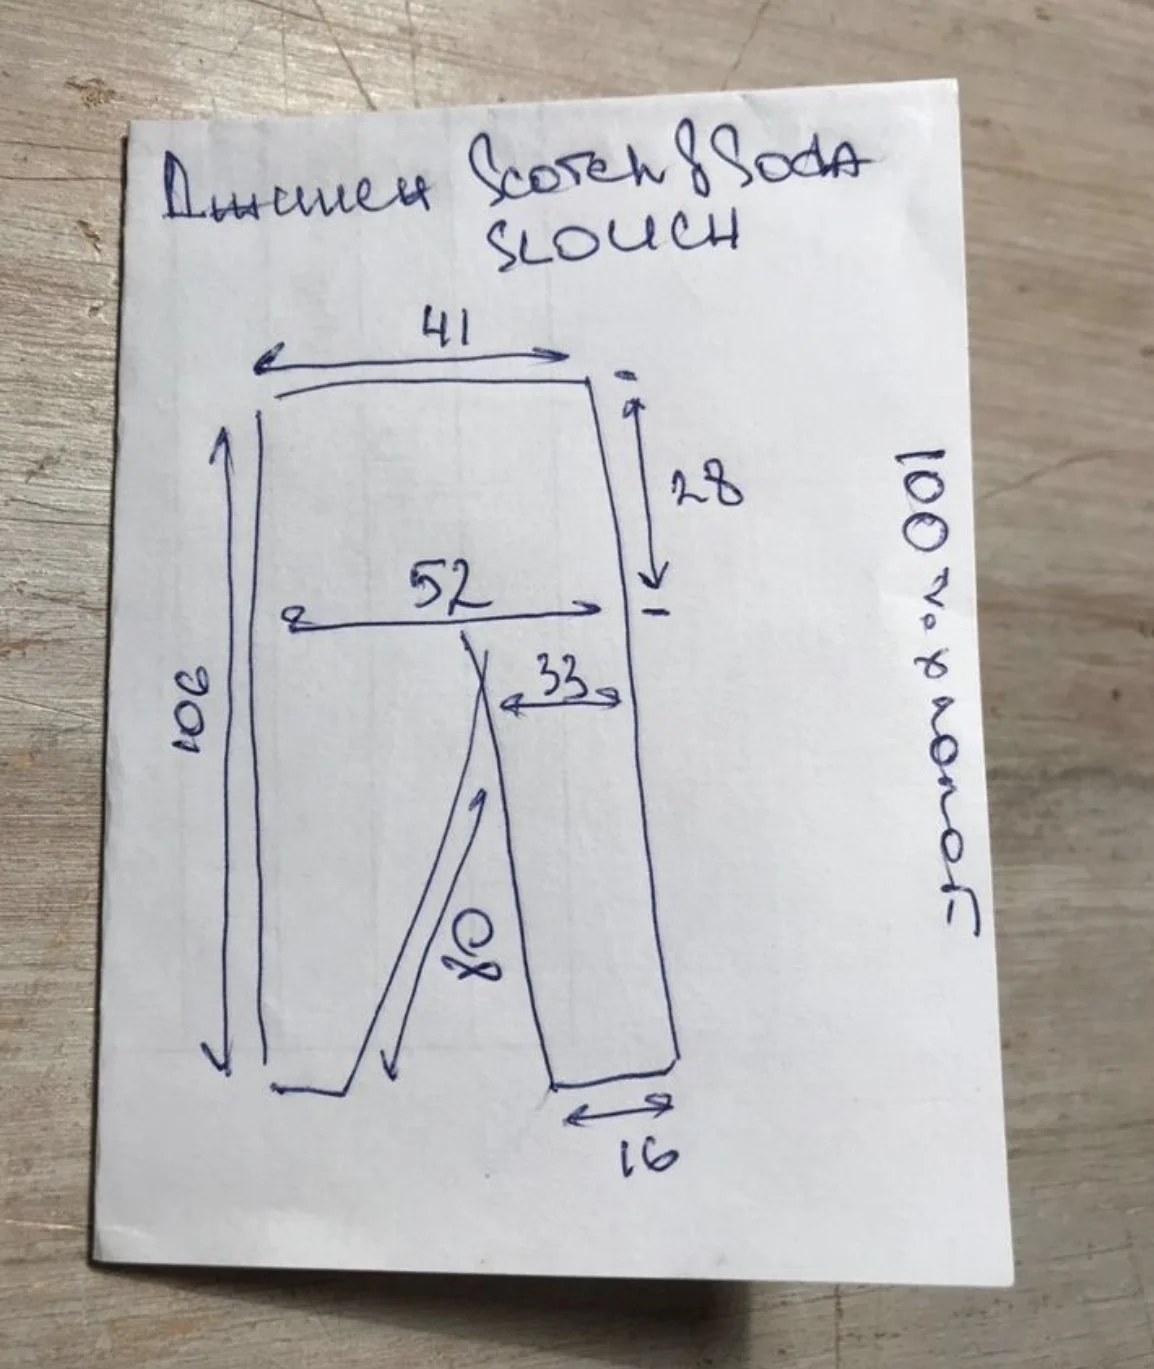 Джинси Scotch & Soda
SLOUCH
41
28
52
33
106
80
16
100% хлопок